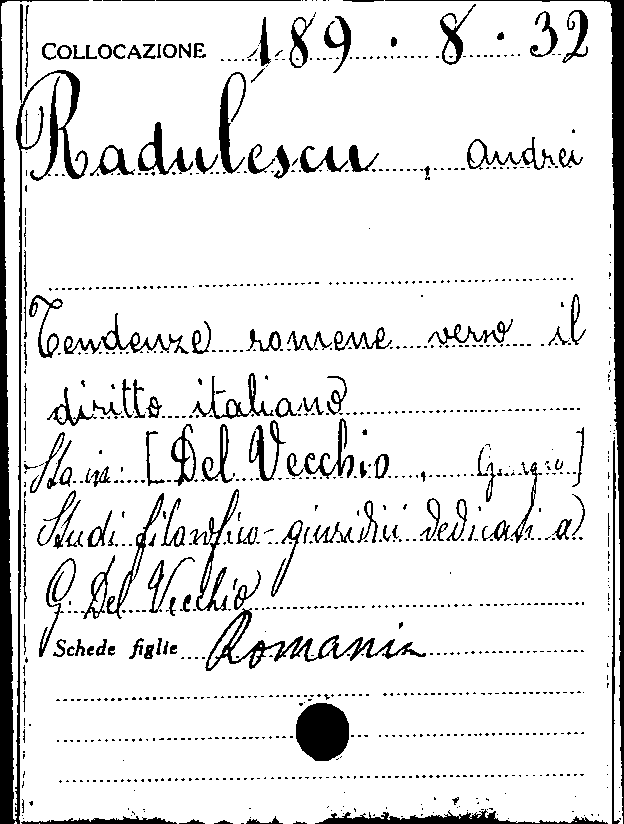 COLLOCAZIONE 189 · 8 · 32
Radulescu, Andrei
Tendenze romene verso il
diritto italiano
Sta in: [Del Vecchio, Giorgio]
Studi filosofico-giuridici dedicati a
G. Del Vecchio
Schede figlie Romania